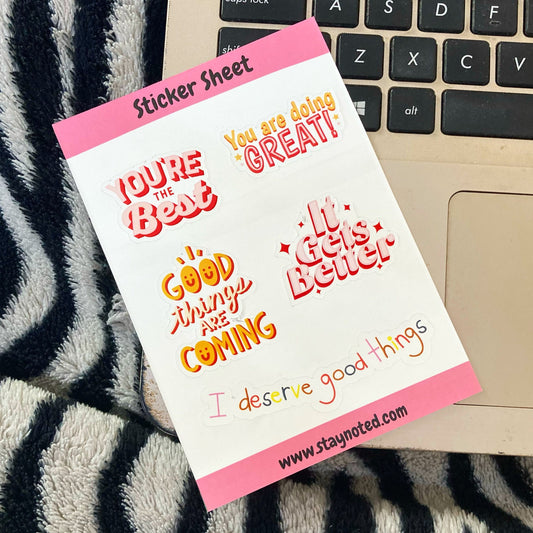 caps lock
A
S
D
F
shift
Z
X
C
V
alt
Sticker Sheet
You are doing
GREAT!
YOU'RE
THE
Best
It
Gets
Better
GOOD
things
ARE
COMING
I deserve good things
www.staynoted.com